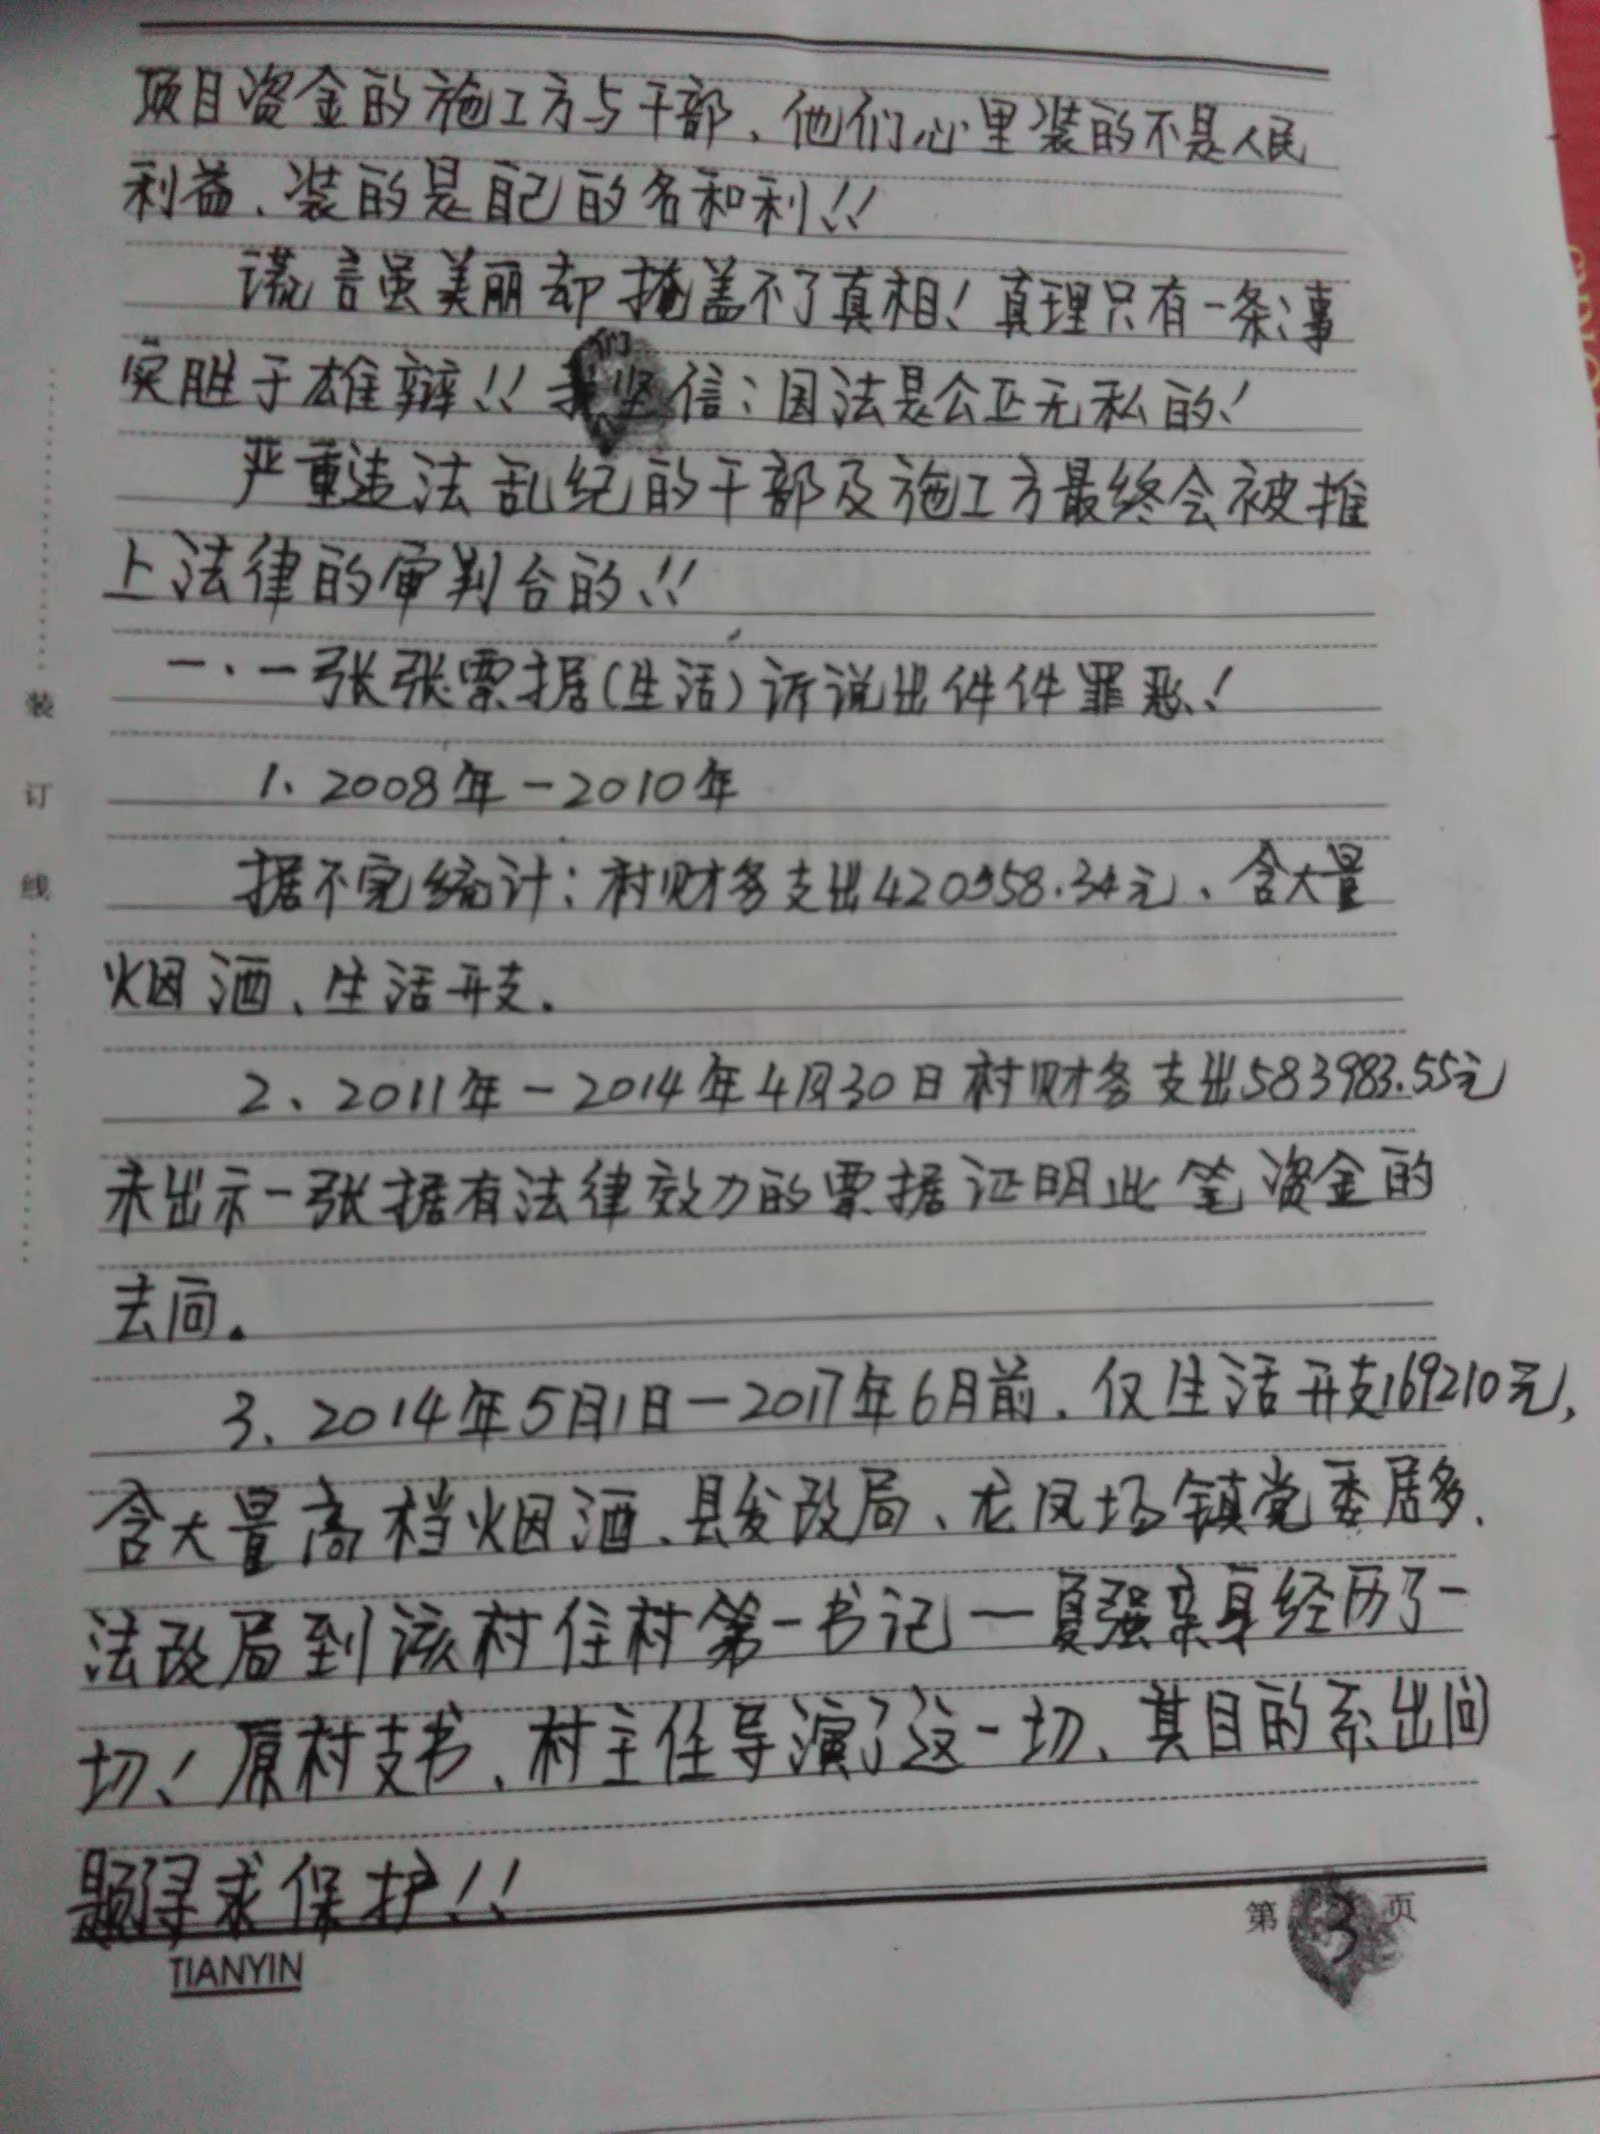 项目资金的施工方与干部、他们心里装的不是人民
利益、装的是自己的名和利!!
谎言虽美丽却掩盖不了真相!真理只有一条:事
实胜于雄辩!!我们坚信:国法是公正无私的!
严重违法乱纪的干部及施工方最终会被推
上法律的审判台的!!
一、一张张票据(生活)诉说出件件罪恶!
1、2008年-2010年
据不完统计:村财务支出420358.34元、含大量
烟酒、生活开支.
2、2011年-2014年4月30日村财务支出583983.55元
未出示一张据有法律效力的票据证明此笔资金的
去向。
3、2014年5月1日-2017年6月前、仅生活开支169210元,
含大量高档烟酒、县发改局、龙凤场镇党委居多、
法改局到该村住村第一书记一夏强亲身经历了一
切!原村支书、村主任导演了这一切、其目的系出问
题寻求保护!!
第3页
TIANYIN
装
订
线